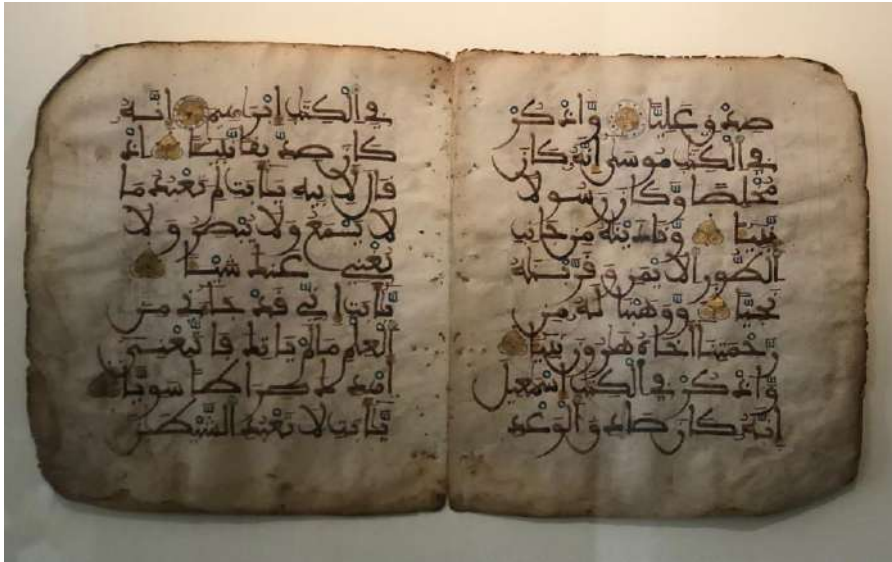 صدق عليا واذكر
في الكتب موسى انه كان
مخلصا وكان رسولا
نبيا وندينه من جانب
الطور الايمن وقربنه
نجيا ووهبنا له من
رحمتنا اخاه هرون نبيا
واذكر في الكتب اسمعيل
انه كان صادق الوعد
في الكتب ابرهيم انه
كان صديقا نبيا اذ
قال لابيه يابت لم تعبد ما
لا يسمع ولا يبصر ولا
يغني عنك شيا
يابت اني قد جاني من
العلم ما لم ياتك فاتبعني
اهدك صراطا سويا
يابت لا تعبد الشيطن